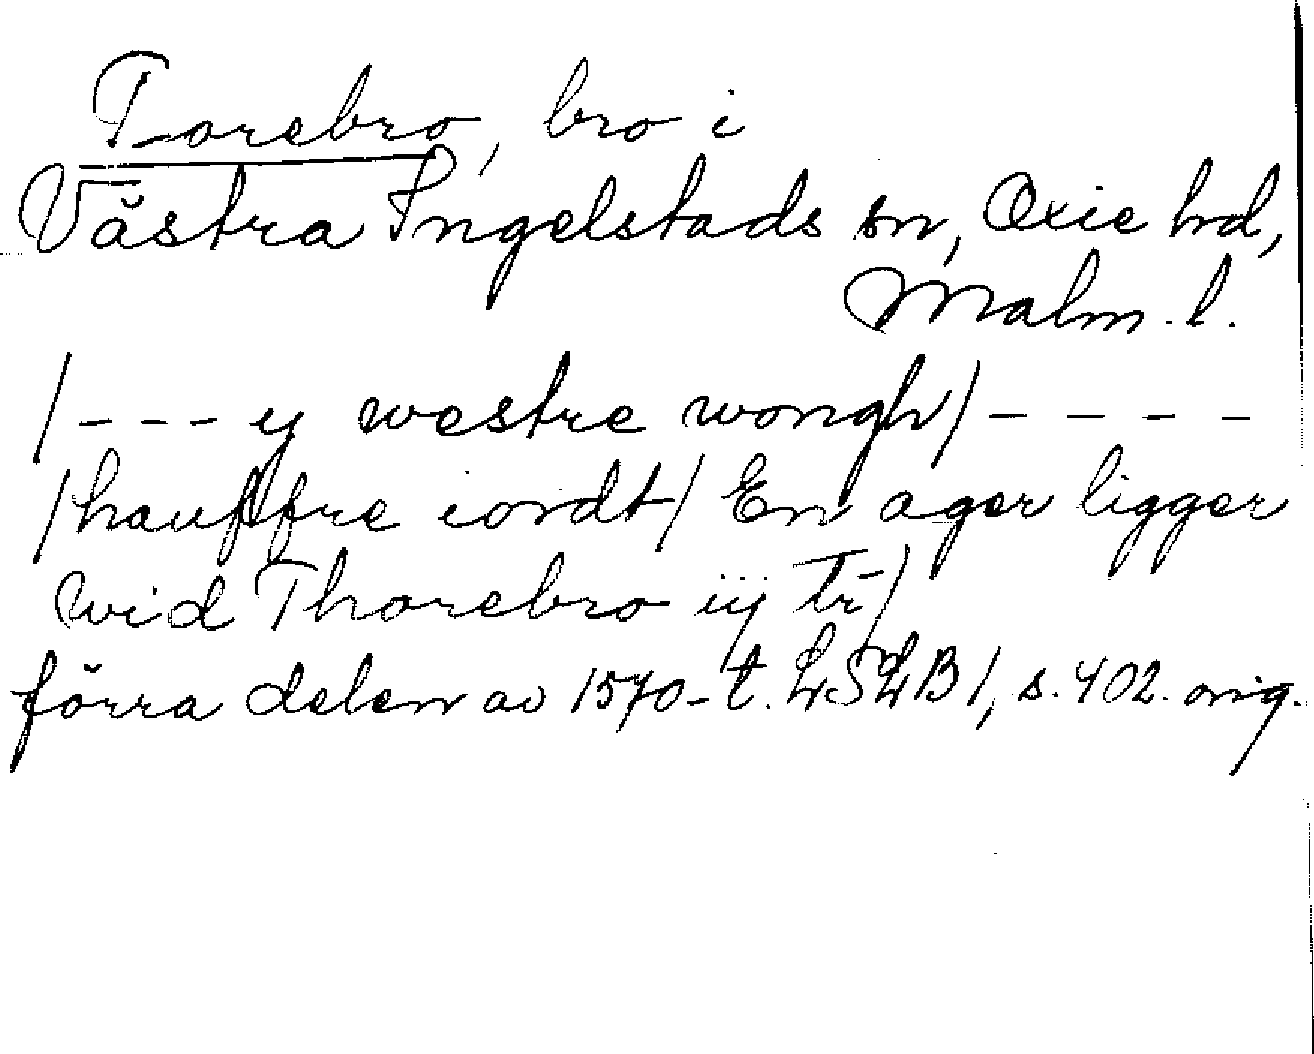 Torebro, bro i
Västra Ingelstads sn, Oxie hd,
Malm. l.
/- - - ij westre wongh/ - - - -
/hauffre iordt/ En ager ligger
wid Thorebro iij Tr-/
förra delen av 1570-t. LSLB 1, s. 402. orig.